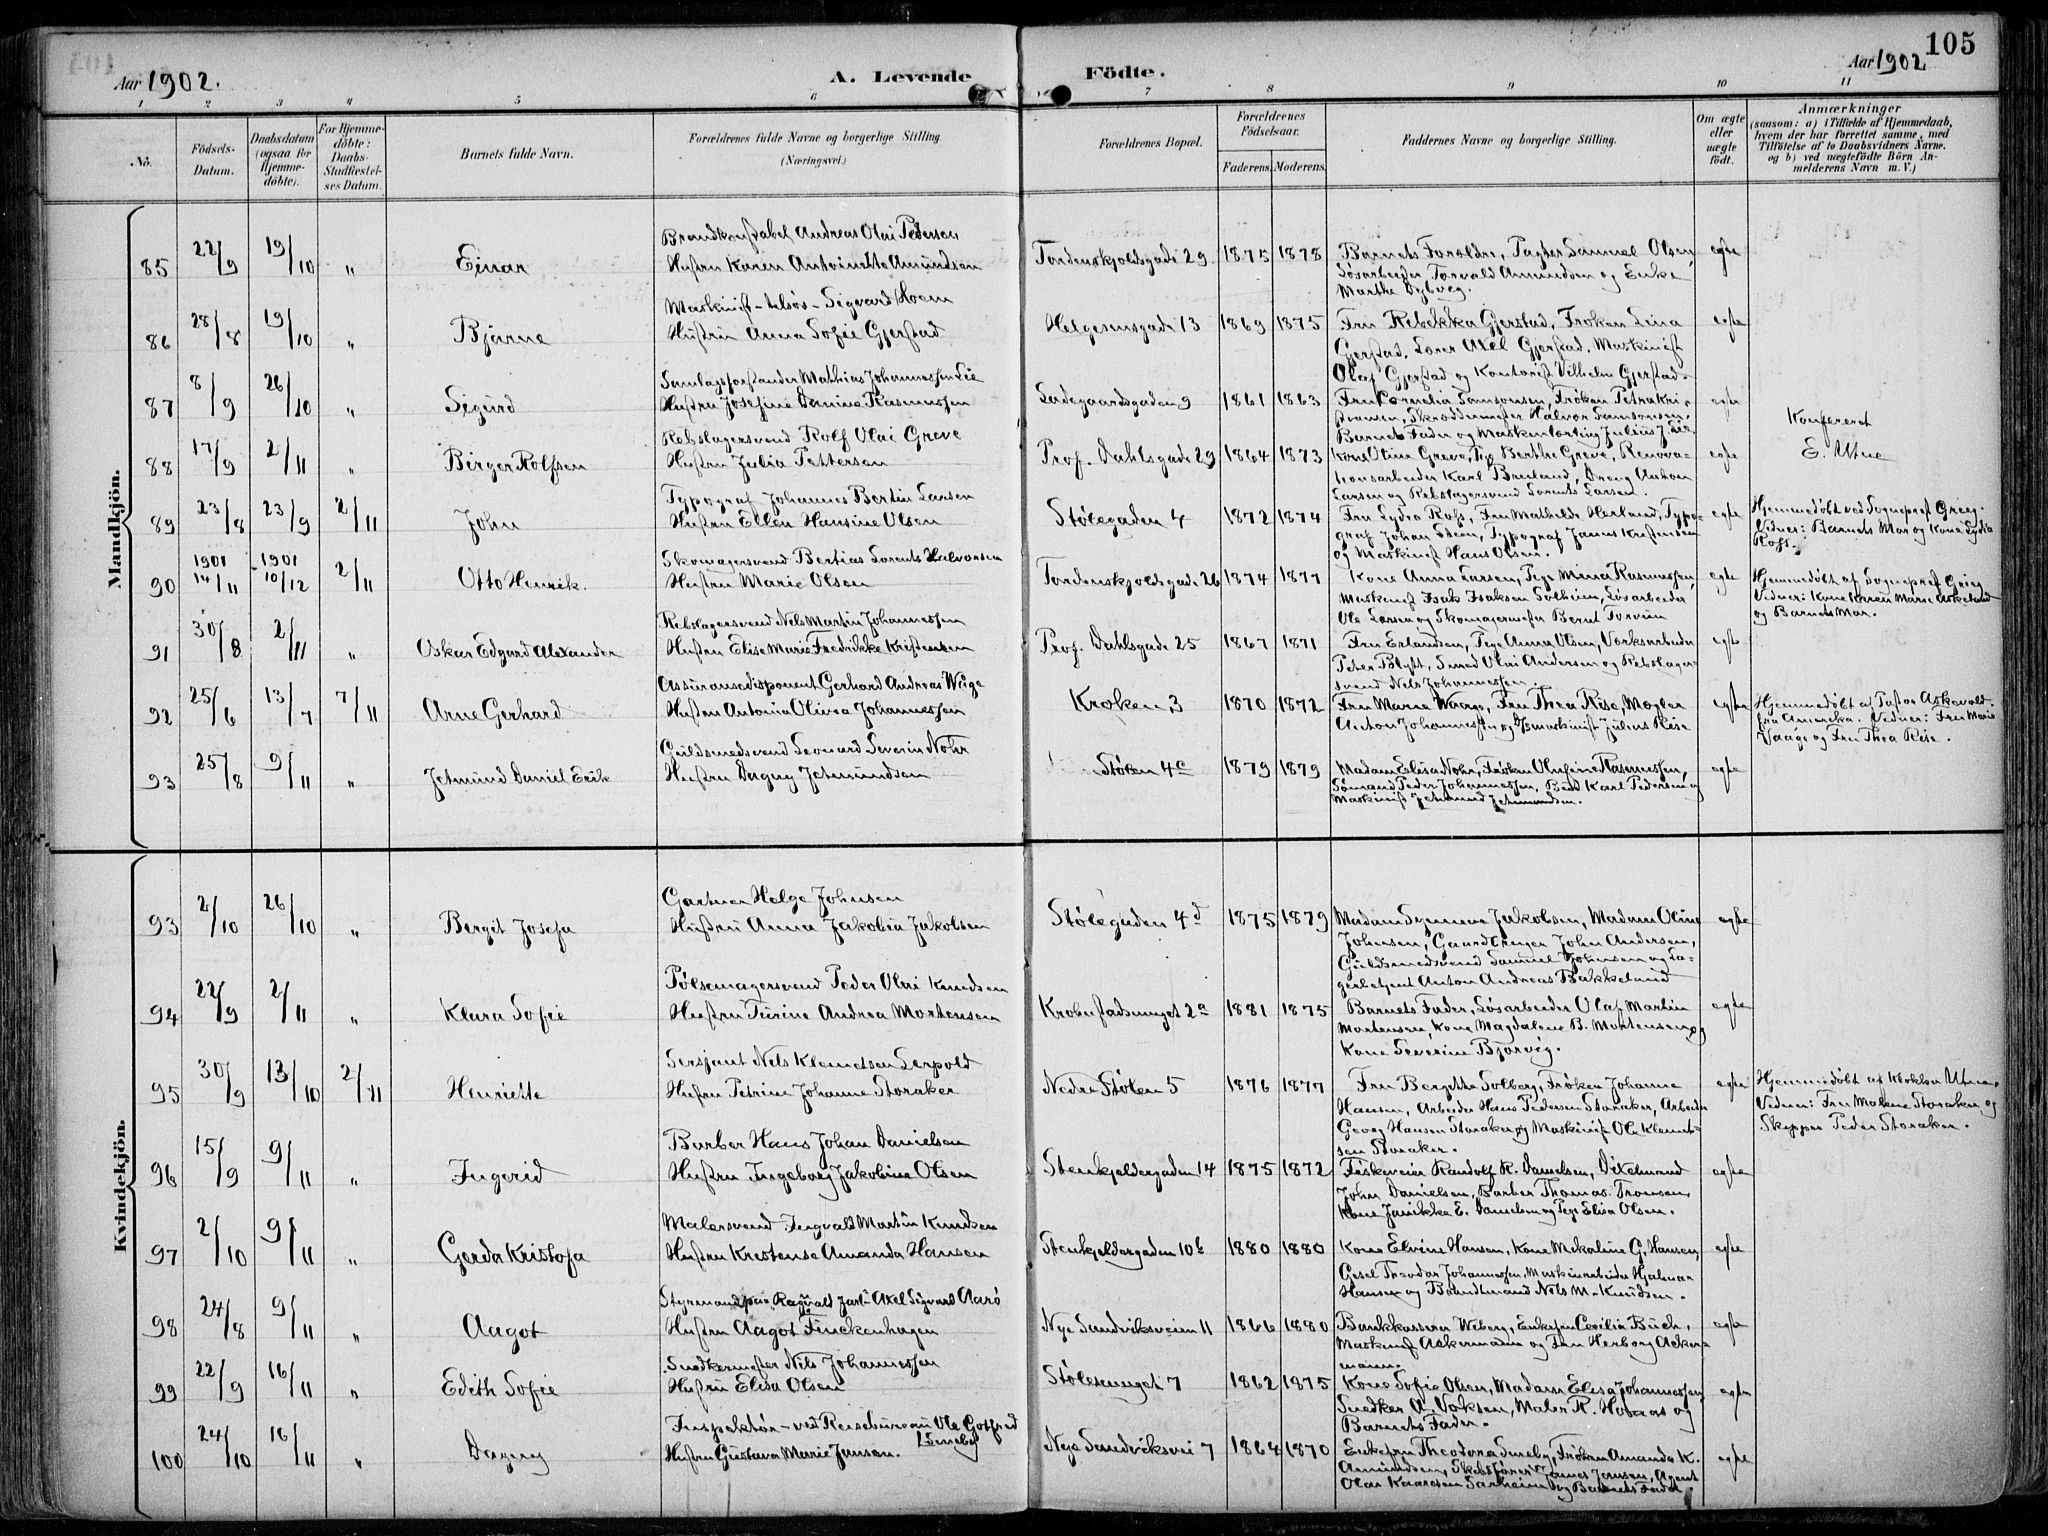 105
Aar 1902. A. Levende Födte. Aar 1902
1 2 3 4 5 6 7 8 9 10 11
No. Födsels-Datum. Daabsdatum (ogsaa for Hjemmedöbte). For Hjemmedöbte: Daabs-Stadfæstelses Datum. Barnets fulde Navn. Forældrenes fulde Navne og borgerlige Stilling. (Næringsvei.) Forældrenes Bopæl. Forældrenes Födselsaar. Faderens. Moderens. Faddernes Navne og borgerlige Stilling. Om ægte eller uægte födt. Anmærkninger (saasom: a) i Tilfælde af Hjemmedaab, hvem der har forrettet samme, med Tilföielse af to Daabsvidners Navne. og b) ved uægtefödte Börn Anmelderens Navn m. V.)
Mandkjön.
85 22/9 19/10 " Einar
Brandkonstabel Andreas Olai Pedersen
Hustru Karen Antoinette Amundsen
Tordenskjoldsgade 29. 1875 1878
Barnets Foreldre, Samuel Olsen,
Løsarbeider Torvald Amundsen og Enke
Marthe Dybveg.
egte
86 28/8 19/10 " Bjarne
Maskinist Sigvard Hoem
Hustru Anna Sofie Gjerstad
Helgesensgade 13 1869 1875
Fru Rebekka Gjerstad, Frøken Lina
Gjerstad, Lærer Axel Gjerstad, Maskinist
Olaf Gjerstad og Kontorist Vilhelm Gjerstad.
egte
87 8/9 26/10 " Sigurd
Samlagsforstander Mathias Johannessen Lie
Hustru Josefine Danine Rasmussen
Ladegaardsgaden 9 1861 1863
Fru Cornelia Samsonsen, Frøken Petra Kri-
stensen, Skræddermester Halvor Samsonsen,
Barnets Fader og Maskinlærling Julius J. Lie.
egte
Konfereret
E. Utne
88 17/9 2/11 " Birger Rolfsen
Rebslagersvend Rolf Olai Greve
Hustru Julia Pettersen
Prof. Dahlsgade 29 1864 1873
Kone Oline Greve, Pige Berthe Greve, Renova-
tionsarbeider Karl Breiland, Dreng Anton
Larsen og Rebslagersvend Lorents Larsen.
egte
89 23/8 23/9 2/11 John
Typograf Johannes Bertin Larsen
Hustru Ellen Hansine Olsen
Stølegaden 4 1872 1874
Fru Lydia Rofs, Fru Mathilde Herland, Typo-
graf Johan Steen, Typograf James Kristensen
og Maskinist Hans Olsen.
egte
Hjemmedøbt ved Sogneprest Grieg.
Vidner: Barnets Mor og Kone Lydia
Rofs.
90 1901 14/11 1901 10/12 2/11 Otto Henrik.
Skomagersvend Bertias Lorents Halvorsen
Hustru Marie Olsen
Tordenskjoldsgade 26 1874 1877
Kone Anna Larsen, Pige Mina Rasmussen,
Maskinist Isak Isaksen Solheim, Løsarbeider
Ole Larsen og Skomagermester Bernt Torvün
egte
Hjemmedøbt af Sogneprest Grieg
Vidner: Kone Karen Marie Askeland
og Barnets Mor.
91 30/8 2/11 " Oskar Edgard Alexander
Rebslagersvend Nels Martin Johannessen
Hustru Elise Marie Fredrikke Kristensen
Prof. Dahlsgade 25 1867 1871
Fru Erlandsen, Pige Anna Olsen, Verksarbeider
Peter Blytt, Smed Olai Andersen og Rebslager-
svend Nels Johannessen.
egte
92 25/6 13/7 7/11 Arne Gerhard
Assuransedisponent Gerhard Andreas Wiige
Hustru Antonia Olivia Johannessen
Kroken 3 1870 1872
Fru Marie Waage, Fru Thea Riise, Mægler
Anton Johannessen og Maskinist Julius Riise
egte
Hjemmedøbt af Pastor Askevold
fra Amerika. Vidner: Fru Marie
Vaage og Fru Thea Riise.
93 25/8 9/11 " Jetmund Daniel Erik
Guldsmedsvend Leonard Severin Nohr
Hustru Dagny Jetmundsen
Stølen 4c 1879 1879
Madam Elisa Nohr, Frøken Olufine Rasmussen,
Sømand Peder Johannessen, Karl Pedersen og
Maskinist Jetmund Jetmundsen.
egte
Kvindekjön.
93 2/10 26/10 " Bergit Josefa
Gartner Helge Johnsen
Hustru Anna Jakobia Jakobsen
Stølegaden 4d 1875 1879
Madam Synneve Jakobsen, Madam Oline
Johnsen, Gaardbruger John Andersen,
Guldsmedsvend Samuel Johnsen og La-
gerbetjent Anton Andreas Bakkelund
egte
94 22/9 2/11 " Klara Sofie
Pølsemagersvend Peder Olai Knudsen
Hustru Turine Andrea Mortensen
Krohnstadsmuget 2a 1881 1875
Barnets Fader, Løsarbeider Olaf Martin
Mortensen, Kone Magdalene B. Mortensen og
Kone Severine Bjorvig.
egte
95 30/9 13/10 2/11 Henriette
Sersjant Nels Klemetsen Leepold
Hustru Petrine Johanne Storaker
Nedre Stølen 5 1876 1877
Fru Bergitte Solberg, Frøken Johanne
Hansen, Arbeider Hans Pedersen Storaker, Arbeider
Georg Hansen Storaker og Maskinist Ole Klemet-
sen Storaker.
egte
Hjemmedøbt af Klokker Utne.
Vidner: Fru Malene Storaker og
Skipper Peder Storaker.
96 15/9 9/11 " Ingerid
Barber Hans Johan Danielsen
Hustru Ingeborg Jakobine Olsen
Stenkjeldergaden 14 1875 1872
Fiskveier Randolf K. Danielsen, Dikelmand
John Danielsen, Barber Thomas Tronsen,
Kone Janikke E. Danielsen og Pige Elisa Olsen.
egte
97 2/10 9/11 " Gerda Kristofa
Malersvend Ingvald Martin Knudsen
Hustru Krestense Amanda Hansen
Stenkjeldergaden 10b 1880 1880
Kone Elvine Hansen, Kone Mekaline G. Hansen,
Gesel Theodor Johannessen, Maskinarbeider Hjalmar
Hansen og Brandmand Nels M. Knudsen.
egte
98 24/8 9/11 " Aagot
Styrmand Ragnvald Jarl Axel Sigvard Aarö
Hustru Aagot Finckenhagen
Nye Sandviksveien 11 1866 1880
Bankkasserer Wiberg, Enkefru Cecilia Büch,
Maskinist Ackermann og Fru Herborg Acker-
mann.
egte
99 22/9 16/11 " Edith Sofie
Snedkermester Nils Johannessen
Hustru Elisa Olsen
Stølesmuget 7 1862 1875
Kone Sofie Olsen, Madam Elisa Johannessen,
Snedker A. Voksen, Maler R. Hovaas og
Barnets Fader.
egte
100 24/10 16/11 " Dagny
Inspektør ved Reisebureau Ole Gotfred
Smeby
Hustru Gustava Marie Jansen.
Nye Sandviksvei 7 1864 1870
Enkefru Theodora Smeby, Frøken Amanda K.
Amundsen, Skibsfører James Jansen, Agent
Olai Knardsen Sarheim og Barnets Fader.
egte